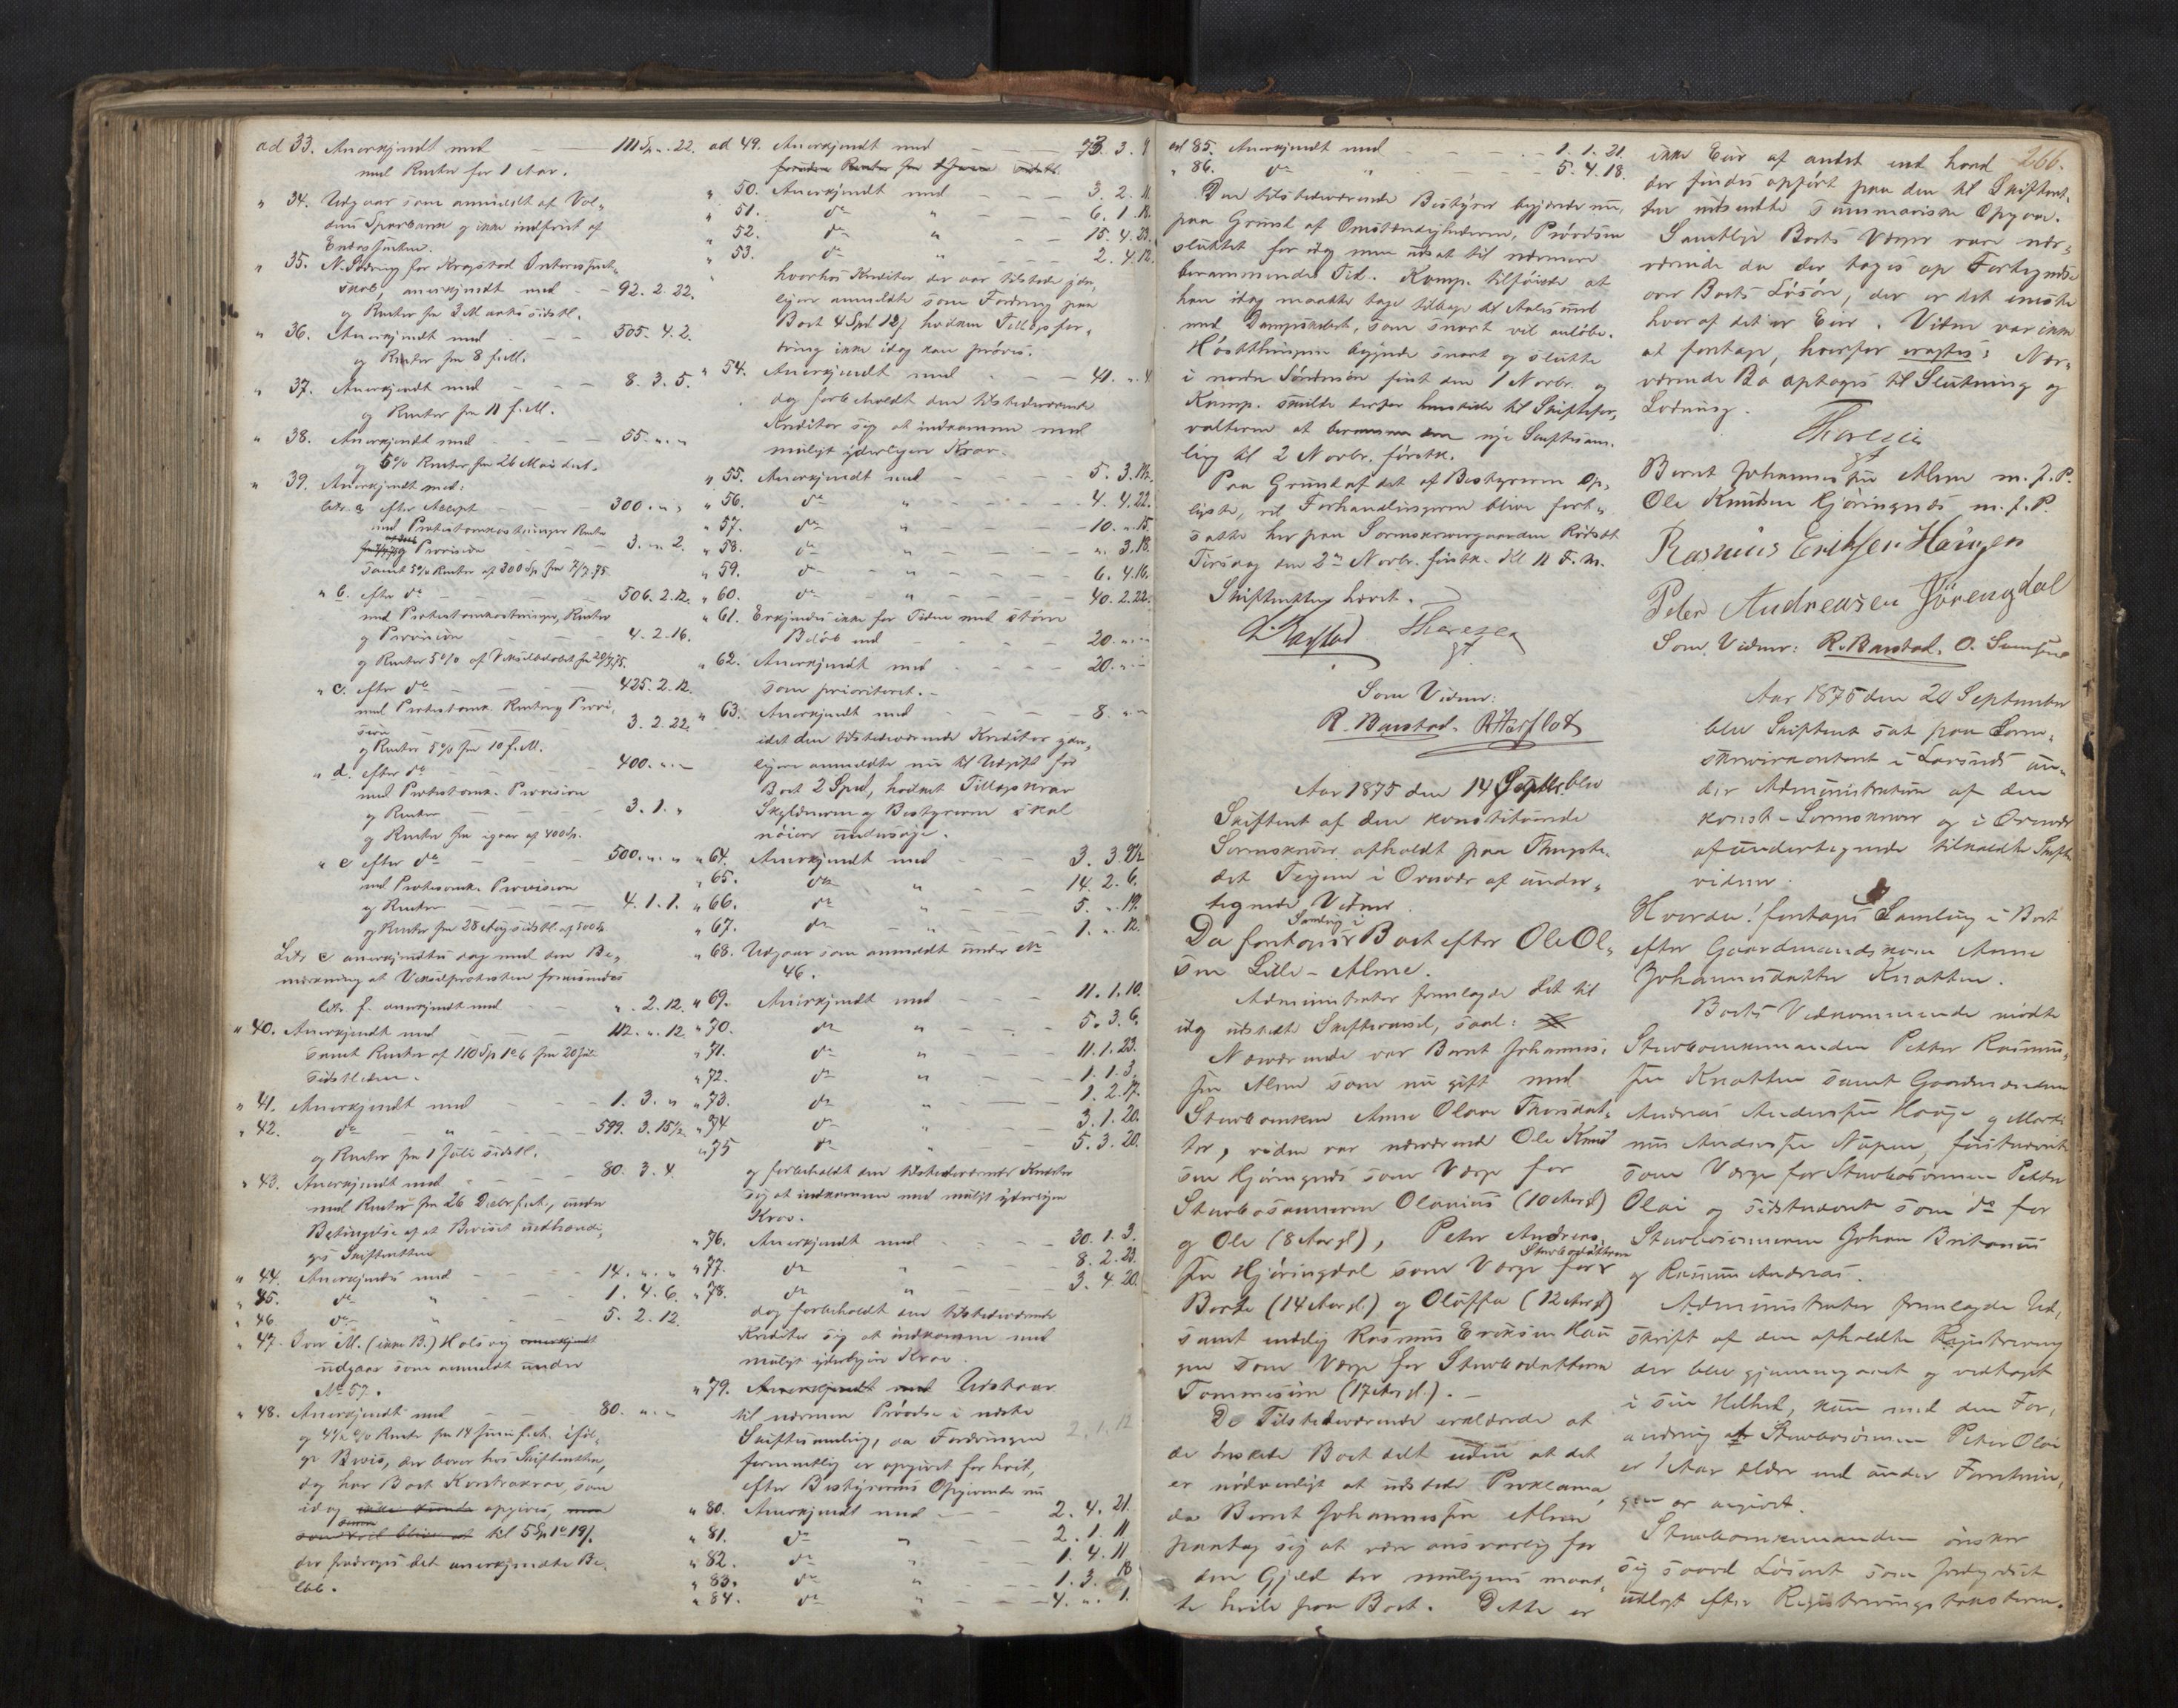 ad 33. Anerkjendt med — 111 Sp. „. 22.
med Renter for 1 Aar.
„ 34. Udgaar som anmeldt af Vol-
dens Sparbank og ikke indfriet af
„ 35. N. Iddring for Kragstad Interesseut-
skab, anerkjendt med — 92. 2. 22.
og Renter fra 3 Marts sidstl.
„ 36. Anerkjendt med — 505. 4. 2.
og Renter fra 8 f. M.
„ 37. Anerkjendt med — 8. 3. 5.
og Renter fra 11 f. M.
„ 38. Anerkjendt med — 55. „ „
og 5% Renter fra 26 Mai sidst.
„ 39. Anerkjendt med:
Litr. a efter Accept — 300. „ „
med Protestomkostninger Renter
og Provision — 3. „ 2.
samt 5% Renter af 300 Sp. fra 7/7 75.
„ b. efter do — 506. 2. 12.
med Protestomkostninger, Renter
og Provision — 4. 2. 16.
og Renter 5% af Vexelbeløbet fra 20/7 75.
„ c. efter do — 425. 2. 12.
med Protestomk. Renter og Provi-
sion — 3. 2. 22.
og Renter 5% fra 10 f. M.
„ d. efter do — 400. „ „
med Protestomk. Provision
og Renter — 3. 1. „
og Renter fra igaar af 400 Sp.
„ e efter do — 500. „ „
med Protestomk. Provision
og Renter — 4. 1. 1.
og Renter fra 28 Aug. sidstl. af 500 Sp.
Litr. e anerkjendtes dog med den Be-
mærkning at Vexelprotesten fremsendes
Litr. f. anerkjendt med — „. 2. 12.
„ 40. Anerkjendt med — 112. „. 12
samt Renter af 110 Sp. fra 20 Juli
sidstleden.
„ 41. Anerkjendt med — 1. 3. „
„ 42. do „ — 599. 3. 15½
og Renter fra 1 Juli sidstl.
„ 43. Anerkjendt med — 80. 3. 4.
med Renter fra 26 Decbr. f. A., under
Betingelse af at Beviset indhændi-
ges Skifteretten
„ 44. Anerkjendes med — 14. „ „
„ 45. do „ — 1. 4. 6.
„ 46. do „ — 5. 2. 12.
„ 47. Iver M. (ikke B.) Holsvig anerkjendt
udgaar som anmeldt under
No 57.
„ 48. Anerkjendt med — 80. „ „
og 4½% Rente fra 14 Juni f. A. iføl-
ge Bevis, der beror hos Skifteretten,
dog har Boet Kontrakrav, som
idag ikke kunde opgives, men
som vil blive at til 5 Sp. 1 o 19 s.
der fradrages det anerkjendte Be-
løb.
ad 49. Anerkjendt med — 73. 3. 9
foruden Renter fra
„ 50. Anerkjendt med — 3. 2. 11.
„ 51. do „ — 6. 1. 18.
„ 52. do „ — 15. 4. 23.
„ 53. do „ — 2. 4. 12.
hvorhos Kreditor, der var tilstede yder-
ligere anmeldte som Fordring paa
Boet 4 Spd 12 s. hvilken Tillægsfor-
dring ikke idag kan prøves.
„ 54. Anerkjendt med — 41. „. 4
dog forbeholdt den tilstedeværende
Kreditor sig at indkomme med
muligt yderligere Krav.
„ 55. Anerkjendt med — 5. 3. 12.
„ 56. do „ — 4. 4. 22.
„ 57. do „ — 10. „. 15.
„ 58. do „ — „. 3. 18.
„ 59. do „ — 6. 4. 16.
„ 60. do „ — 40. 2. 22.
„ 61. Erkjendes ikke for Tiden med større
Beløb end — 20. „ „
„ 62. Anerkjendt med — 20. „ „
som prioriteret. —
„ 63. Anerkjendt med — 8. „ „
idet den tilstedeværende Kreditor yder-
ligere anmeldte nu til Udgift for
Boet 2 Spd, hvilket Tillægskrav
Skyldneren og Bestyreren skal
nøiere undersøge.
„ 64. Anerkjendt med — 3. 3. 22
„ 65. do „ — 14. 2. 6.
„ 66. do „ — 5. „. 19.
„ 67. do „ — 1. „. 12.
„ 68. Udgaar som anmeldt under No
46.
„ 69. Anerkjendt med — 11. 1. 10.
„ 70. do „ — 5. 3. 6.
„ 71. do „ — 11. 1. 23.
„ 72. do „ — 1. 1. 3.
„ 73. do „ — 1. 2. 17.
„ 74 do „ — 3. 1. 20.
„ 75 do „ — 5. 3. 20.
og forbeholdt den tilstedeværende Kreditor
sig at indkomme med muligt yderligere
Krav.
„ 76. Anerkjendt med — 30. 1. 3.
„ 77. do „ — 8. 2. 23.
„ 78. do „ — 3. 4. 20.
dog forbeholdt den tilstedeværende
Kreditor sig at indkomme med
muligt yderligere Krav.
„ 79. Anerkjendt med Udstaar
til nærmere Prøvelse i næste
Skiftesamling, da Fordringen 2. 1. 12
formentlig er opgivet for høit,
efter Bestyrerens Opgivende nu
„ 80. Anerkjendt med — 2. 4. 21.
„ 81. do „ — 2. 1. 11
„ 82. do „ — 1. 4. 11
„ 83. do „ — 1. 3. 18
„ 84. do „ — 4. „. 1.
ad 85. Anerkjendt med — 1. 1. 21.
„ 86. do „ — 5. 4. 18.
Den tilstedeværende Bestyrer begjærede nu,
paa Grund af Omstændighederne, Prøvelsen
sluttet for idag men udsat til nærmere
berammende Tid. Komp. tilføiede at
han idag maatte tage tilbage til Aalesund
med Dampskibet, som snart vil anløbe.
Høstthingene begynde snart og slutte
i nordre Søndmør først den 1 Novbr. og
Komp. stillede derfor henstilles til Skiftefor-
valteren at beramme den nye Skiftesam-
ling til 2 Novbr. førstk.
Paa Grund af det af Bestyreren Op-
lyste, vil Forhandlingerne blive fort-
satte her paa Sorenskrivergaarden Rødsæt
Tirsdag den 2den Novbr. førstk. Kl 11 F. M.
Skifteretten hævet.
Thoresen
gt
Som Vidner:
R. Barstad. R. Hasflot
Aar 1875 den 14 Septbr. blev
Skifteret af den konstituerede
Sorenskriver afholdt paa Thingste-
det Teigene i Ørsten af under-
tegnede Vidner.
Da foretoges Samling i Boet efter Ole Ol-
sen Lille-Alme.
Administrator fremlagde det til
idag udstedte Skiftevarsel, saal:
Nærværende var Bernt Johannes-
sen Alme som nu gift med
Stervboenken Anne Olave Thorsdat-
ter, videre var nærværende Ole Knud
sen Hjøringnæs som Værge for
Stervbosønnerne Olavius (10 Aar gl)
og Ole (8 Aar gl), Peter Andreas-
sen Hjøringdal som Værge for Stervbodøttrene
Berthe (14 Aar gl.) og Oluffa (12 Aar gl)
samt endelig Rasmus Eriksen Hau
gen som Værge for Stervbodatteren
Tommesine (17 Aar gl.). —
De Tilstedeværende erklærede at
de ønskede Boet delt uden at det
er nødvendigt at udstede Proklama,
da Bernt Johannessen Alme
paatog sig at være ansvarlig for
den Gjæld der muligens maat-
te hvile paa Boet. Dette er
266.
ikke Eier af andet end hvad
der findes opført paa den til Skifteret-
ten indsendte summariske Opgave.
Samtlige Boets Værger vare nær-
værende da der toges op Fortegnelse
over Boets Løsøre, der er det eneste
hvoraf det er Eier. Videre var ikke
at foretage, hvorfor eragtes: Nær-
værende Bo optages til Slutning og
Lodning.
Thoresen
gt
Bernt Johannessen Alme m. f. P.
Ole Knudsen Hjøringnæs m. f. P.
Rasmus Eriksen Haugen
Peder Andreasen Jørengdal
Som Vidner: R. Barstad. O.
Aar 1875 den 20 September
blev Skifteret sat paa Soren-
skriverkontoret i Larsnæs un-
der Administration af den
konst. Sorenskriver og i Overvær
af undertegnede tilkaldte Skifte
vidner.
Hvorda! foretages Samling i Boet
efter Gaardmandskone Anne
Johannesdatter Knotten.
Boets Vedkommende mødte
Stervboenkemanden Petter Rasmus-
sen Knotten samt Gaardmændene
Andreas Anderssen Hauge og Marti
nus Anderssen Nupen, førstnævnte
som Værge for Stervbosønnen Petter
Olai og sidstnævnte som do for
Stervbosønnerne Johan Britanus
og Rasmus Andreas.
Administrator fremlagde Ud-
skrift af den afholdte Registrering
der blev gjennemgaaet og vedtaget
i sin Helhed, kun med den For-
andring at Stervbosønnen Peter Olai
er 1 Aar ældre end under Forretnin-
gen er angivet.
Stervboenkemanden ønsker
sig saavel Løsøret som Jordgodset
udlagt efter Registreringstaksterne.